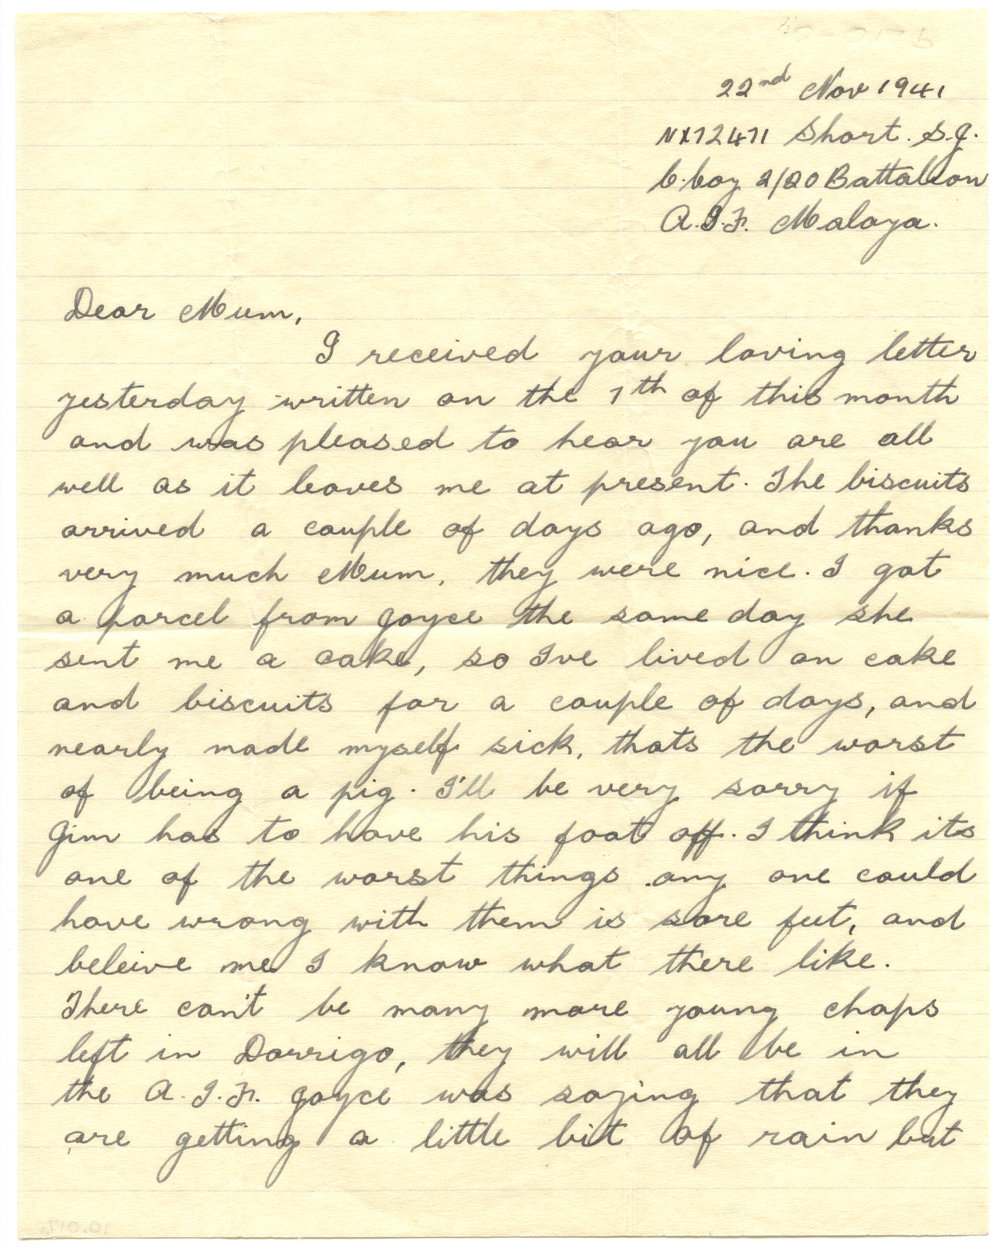 22nd Nov 1941
NX72471 Short. S.J.
C. Coy 2/20 Battalion
A.I.F. Malaya.
Dear Mum,
I received your loving letter
yesterday written on the 7th of this month
and was pleased to hear you are all
well as it leaves me at present. The biscuits
arrived a couple of days ago, and thanks
very much Mum, they were nice. I got
a parcel from Joyce the same day she
sent me a cake, so I've lived on cake
and biscuits for a couple of days, and
nearly made myself sick, thats the worst
of being a pig. I'll be very sorry if
Jim has to have his foot off. I think its
one of the worst things any one could
have wrong with them is sore feet, and
beleive me I know what there like.
There can't be many more young chaps
left in Dorrigo, they will all be in
the A.I.F. Joyce was saying that they
are getting a little bit of rain but